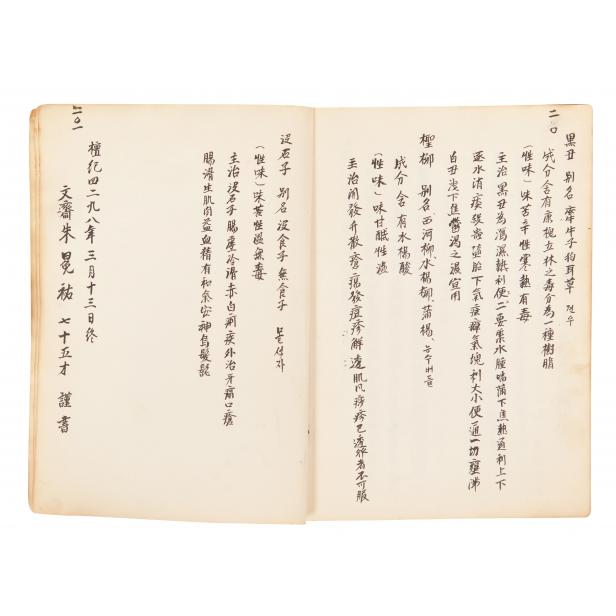 二一〇
黑丑 別名 牽牛子 狗耳草 견우
成分 含有康槐立林之毒分為一種樹脂
(性味) 味苦辛性寒熱有毒
主治 黑丑為瀉濕熱利便、二要藥水腫喘滿下焦熱通利上下
逐水消痰殺蟲墮胎下氣痃癖氣塊利大小便通一切壅滯
白丑 洩下焦鬱濕之濕宜用
檉柳 別名 西河柳、水楊柳、蒲楊、능수버들
成分 含有水楊酸
(性味) 味甘鹹性溫
主治 開發升散瘡瘍發痘疹解透肌膚痧疹已透後者不可服
二一一
沒石子 別名 沒食子 無食子 몰석자
(性味) 味苦性溫無毒
主治 沒石子腸虛冷滑赤白痢疾外治牙痛口瘡
腸滑生肌肉益血精有和氣安神烏髮髭
檀紀四二九八年 三月十三日 終
文齋 朱冕祐 七十五才 謹書